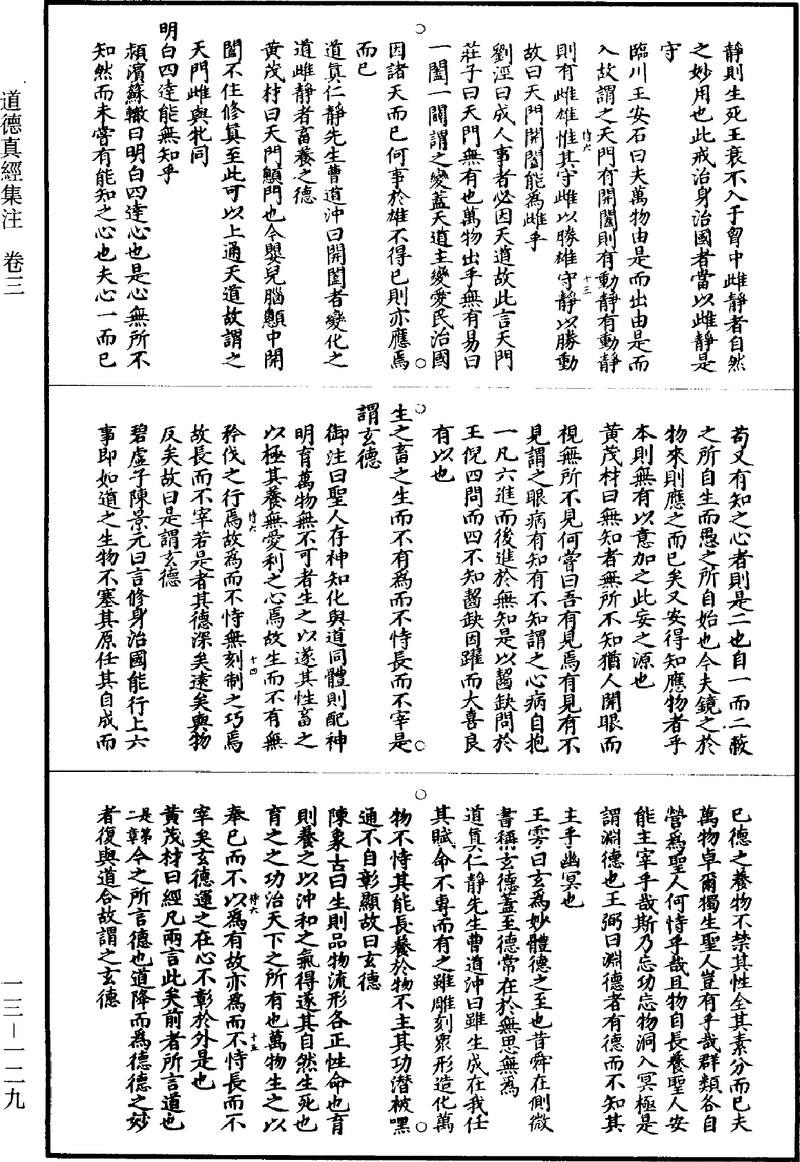 道德真經集注　卷三
靜則生死王衰不入于胷中雌靜者自然
之妙用也此戒治身治國者當以雌靜是
守
臨川王安石曰夫萬物由是而出由是而
入故謂之天門有開闔則有動靜有動靜
則有雌雄惟其守雌以勝雄守靜以勝動
故曰天門開闔能為雌乎
劉涇曰成人事者必因天道故此言天門
莊子曰天門無有也萬物出乎無有易曰
一闔一闢謂之變蓋天道主變愛民治國
因諸天而已何事於雄不得已則亦應焉
而已
道真仁靜先生曹道沖曰開闔者變化之
道雌靜者畜養之德
黃茂材曰天門顖門也今嬰兒腦顖中開
闔不住修真至此可以上通天道故謂之
天門雌與牝同
明白四達能無知乎
頴濱蘇轍曰明白四達心也是心無所不
知然而未嘗有能知之心也夫心一而已
苟又有知之心者則是二也自一而二蔽
之所自生而愚之所自始也今夫鏡之於
物來則應之而已矣又安得知應物者乎
本則無有以意加之此妄之源也
黃茂材曰無知者無所不知猶人開眼而
視無所不見何嘗曰吾有見焉有見有不
見謂之眼病有知有不知謂之心病自抱
一凡六進而後進於無知是以齧缺問於
王倪四問而四不知齧缺因躍而大喜良
有以也
生之畜之生而不有為而不恃長而不宰是
謂玄德
御注曰聖人存神知化與道同體則配神
明育萬物無不可者生之以遂其性畜之
以極其養無愛利之心焉故生而不有無
矜伐之行焉故為而不恃無刻制之巧焉
故長而不宰若是者其德深矣遠矣與物
反矣故曰是謂玄德
碧虛子陳景元曰言修身治國能行上六
事即如道之生物不塞其原任其自成而
已德之養物不禁其性全其素分而已夫
萬物卓爾獨生聖人豈有乎哉群類各自
營為聖人何恃乎哉且物自長養聖人安
能主宰乎哉斯乃忘功忘物洞入冥極是
謂淵德也王弼曰淵德者有德而不知其
主乎幽冥也
王雱曰玄為妙體德之至也昔舜在側微
書稱玄德蓋至德常在於無思無為
道真仁靜先生曹道沖曰雖生成在我任
其賦命不專而有之雖雕刻衆形造化萬
物不恃其能長養於物不主其功潛被嘿
通不自彰顯故曰玄德
陳象古曰生則品物流形各正性命也育
則養之以沖和之氣得遂其自然生死也
育之之功治天下之所有也萬物生之以
奉已而不以為有故亦為而不恃長而不
宰矣玄德運之在心不彰於外是也
黃茂材曰經凡兩言此矣前者所言道也
是第二章今之所言德也道降而為德德之妙
者復與道合故謂之玄德
一三—一二九